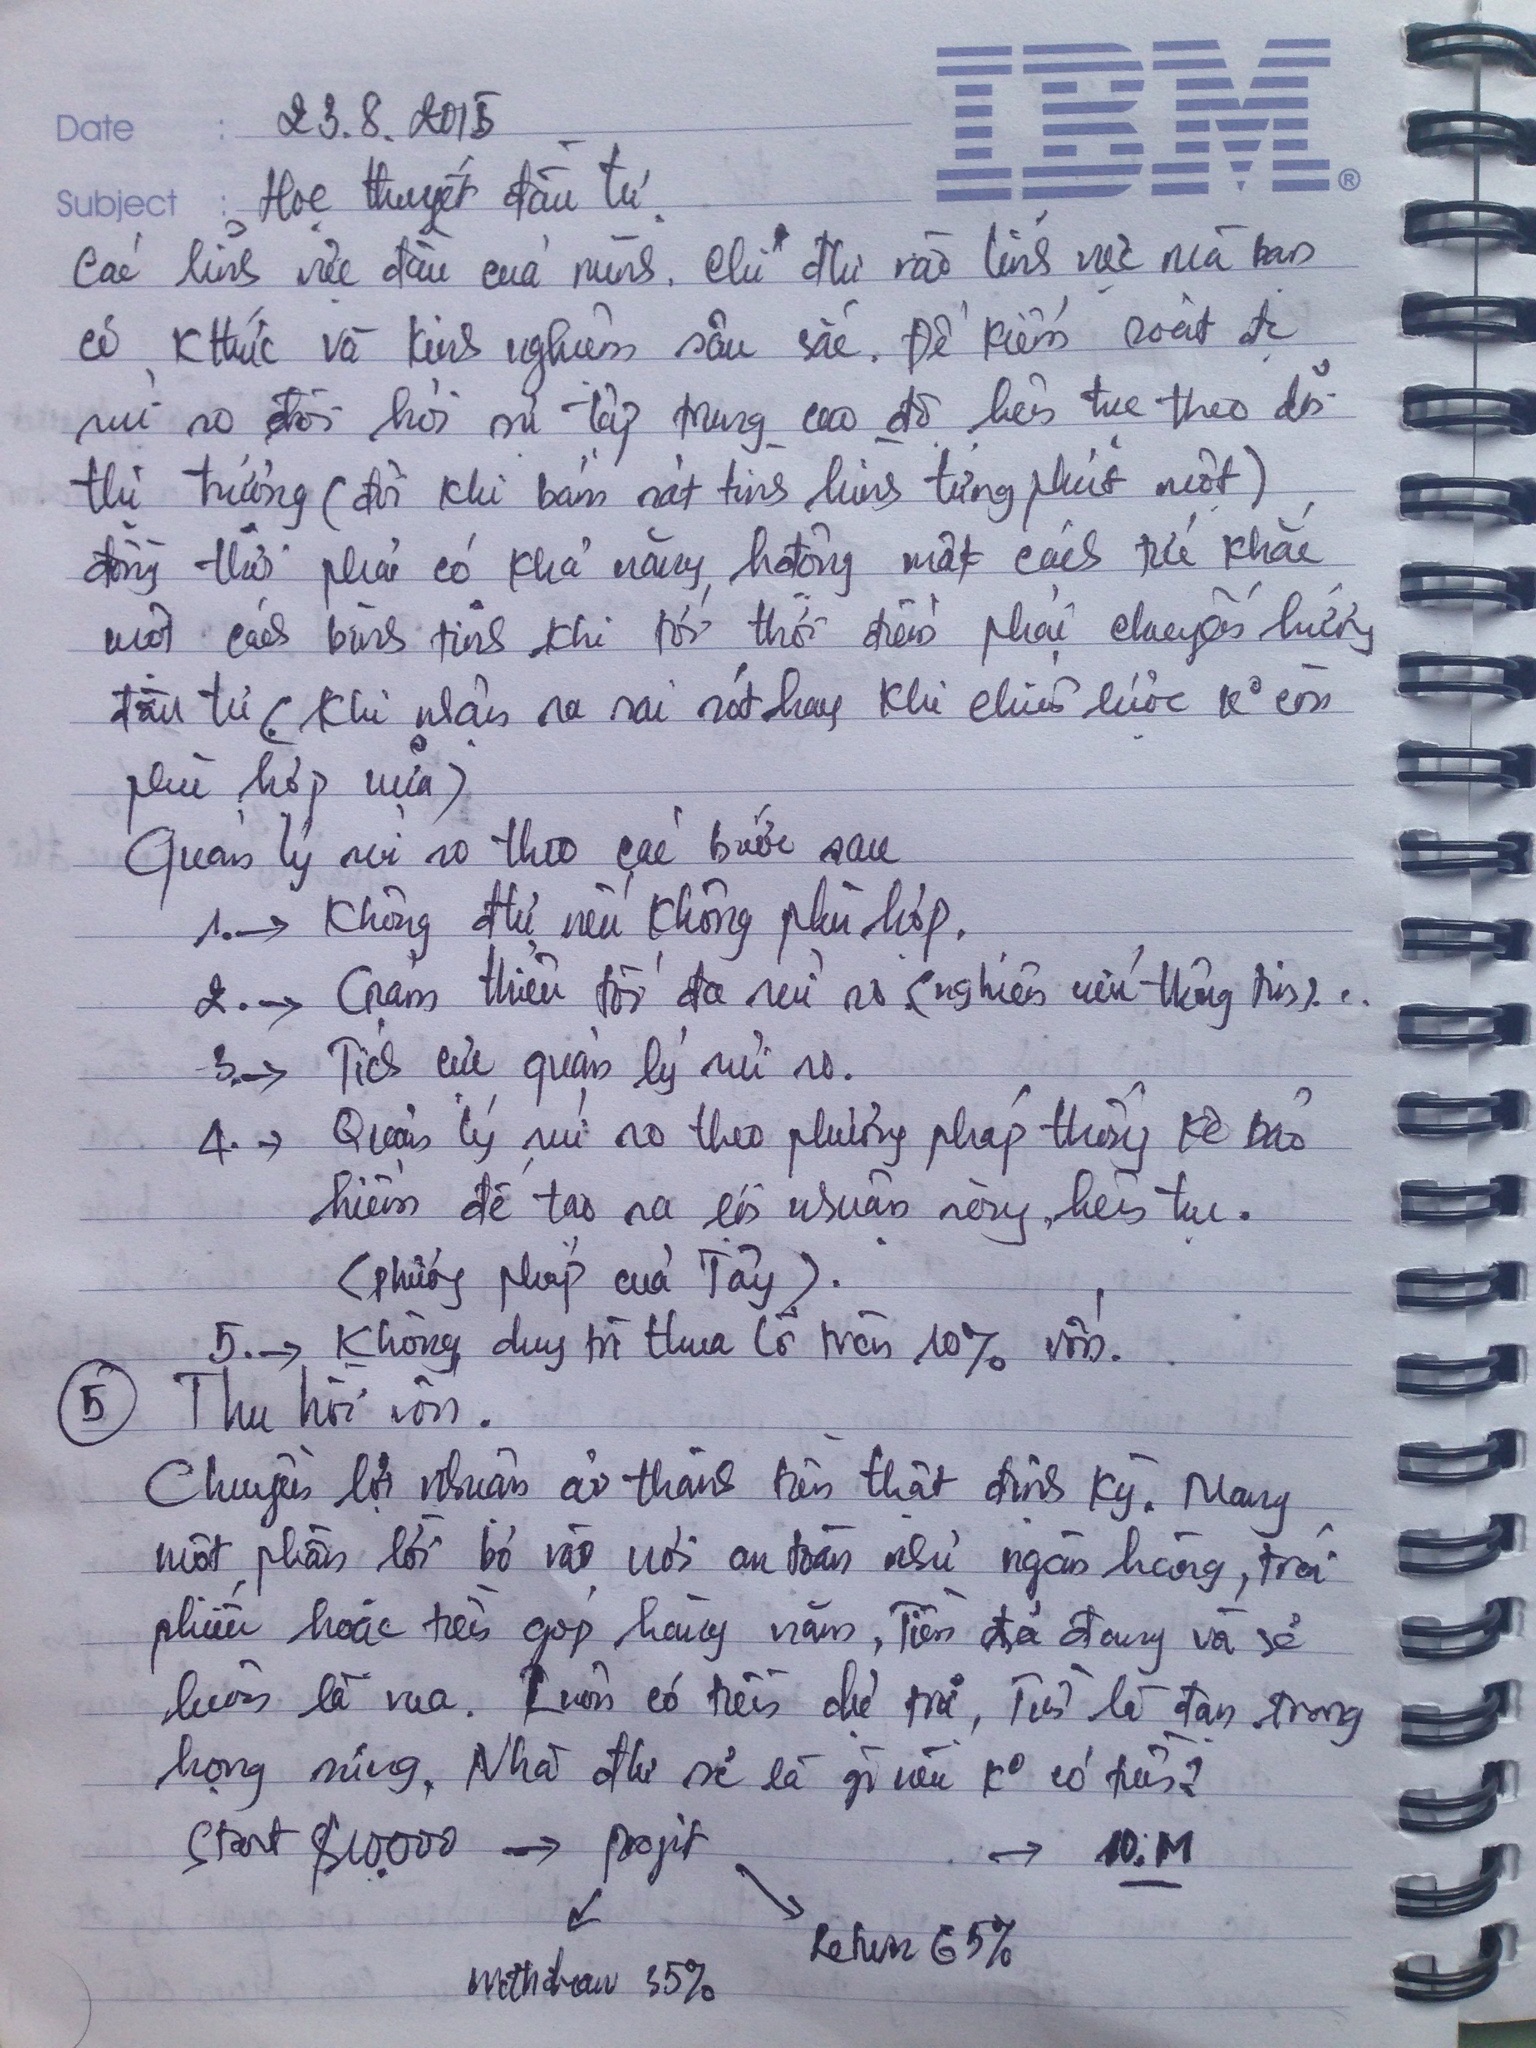 IBM®
Date : 23.8.2015
Subject : Học thuyết đầu tư.
Các lĩnh vực đầu của mình. Chỉ đtư vào lĩnh vực mà bạn
có kthức và kinh nghiệm sâu sắc. Để kiểm soát đc
rủi ro đòi hỏi sự tập trung cao độ, liên tục theo dõi
thị trường (đôi khi bám sát tình hình từng phút một)
đồng thời phải có khả năng hđộng một cách
một cách bình tĩnh khi tới thời điểm phải chuyển hướng
đầu tư (khi nhận ra sai sót hay khi chiến lược ko còn
phù hợp nữa)
Quản lý rủi ro theo các bước sau
1. → Không đtư nếu không phù hợp.
2. → Giảm thiểu tối đa rủi ro (nghiên cứu thông tin)...
3. → Tích cực quản lý rủi ro.
4. → Quản lý rủi ro theo phương pháp thống kê bảo
hiểm để tạo ra lợi nhuận ròng, liên tục.
(phương pháp của Tây).
5. → Không duy trì thua lỗ trên 10% vốn.
5 Thu hồi vốn.
Chuyển lợi nhuận ảo thành tiền thật định kỳ. Mang
một phần lời bỏ vào nơi an toàn như ngân hàng, trái
phiếu hoặc tiền góp hàng năm, Tiền đã đang và sẽ
luôn là vua. Luôn có tiền dự trữ, Tiền là đạn trong
họng súng. Nhà đtư sẽ là gì nếu ko có tiền?
Start $10.000 → profit → 10.M
Return 65%
withdraw 35%